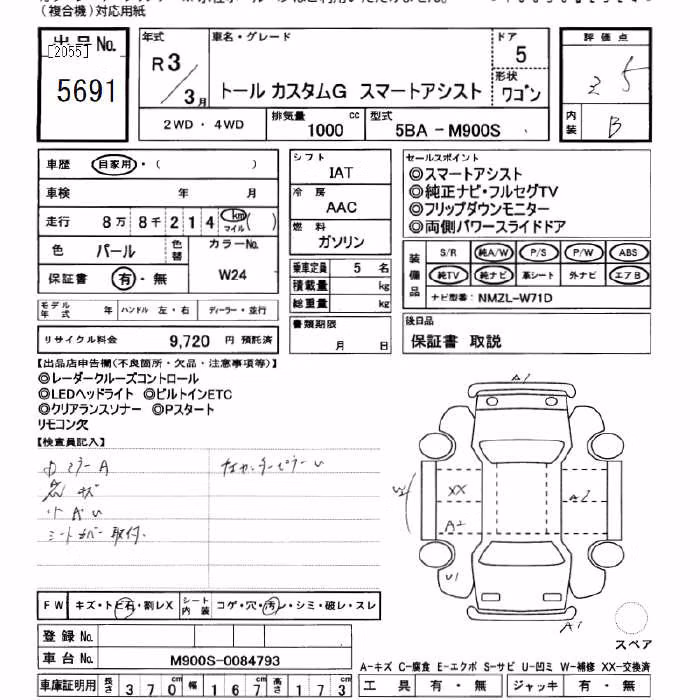 （複合機）対応用紙
出品No. 年式 車名・グレード ドア 評価点
[2055]
5691
R3 / 3月 トール カスタムG スマートアシスト 5
形状 ワゴン
2WD・4WD 排気量 1000 cc 型式 5BA-M900S 内装 B
車歴 自家用・（ ）
車検 年 月
走行 8万 8千 2 1 4 km マイル ( )
色 パール 色替 カラーNo. W24
保証書 有・無
モデル年式 年 ハンドル 左・右 ディーラー・並行
リサイクル料金 9,720 円 預託済
シフト IAT
冷房 AAC
燃料 ガソリン
乗車定員 5 名
積載量 kg
総重量 kg
書類期限 月 日
セールスポイント
◎スマートアシスト
◎純正ナビ・フルセグTV
◎フリップダウンモニター
◎両側パワースライドドア
装備品 S/R 純A/W P/S P/W ABS
純TV 純ナビ 革シート 外ナビ エアB
ナビ型番： NMZL-W71D
後日品
保証書 取説
【出品店申告欄（不良箇所・欠品・注意事項等）】
◎レーダークルーズコントロール
◎LEDヘッドライト ◎ビルトインETC
◎クリアランスソナー ◎Pスタート
リモコン欠
【検査員記入】
内ミラーA
シートカバー取付.
A1
XX
A2
A2
U1
A1
スペア
FW キズ・トビ石・割レX シート内装 コゲ・穴・汚レ・シミ・破レ・スレ
登録No.
車台No. M900S-0084793
車庫証明用 長さ 370cm 幅 167cm 高さ 173cm
A-キズ C-腐食 E-エクボ S-サビ U-凹ミ W-補修 XX-交換済
工具 有・無 ジャッキ 有・無